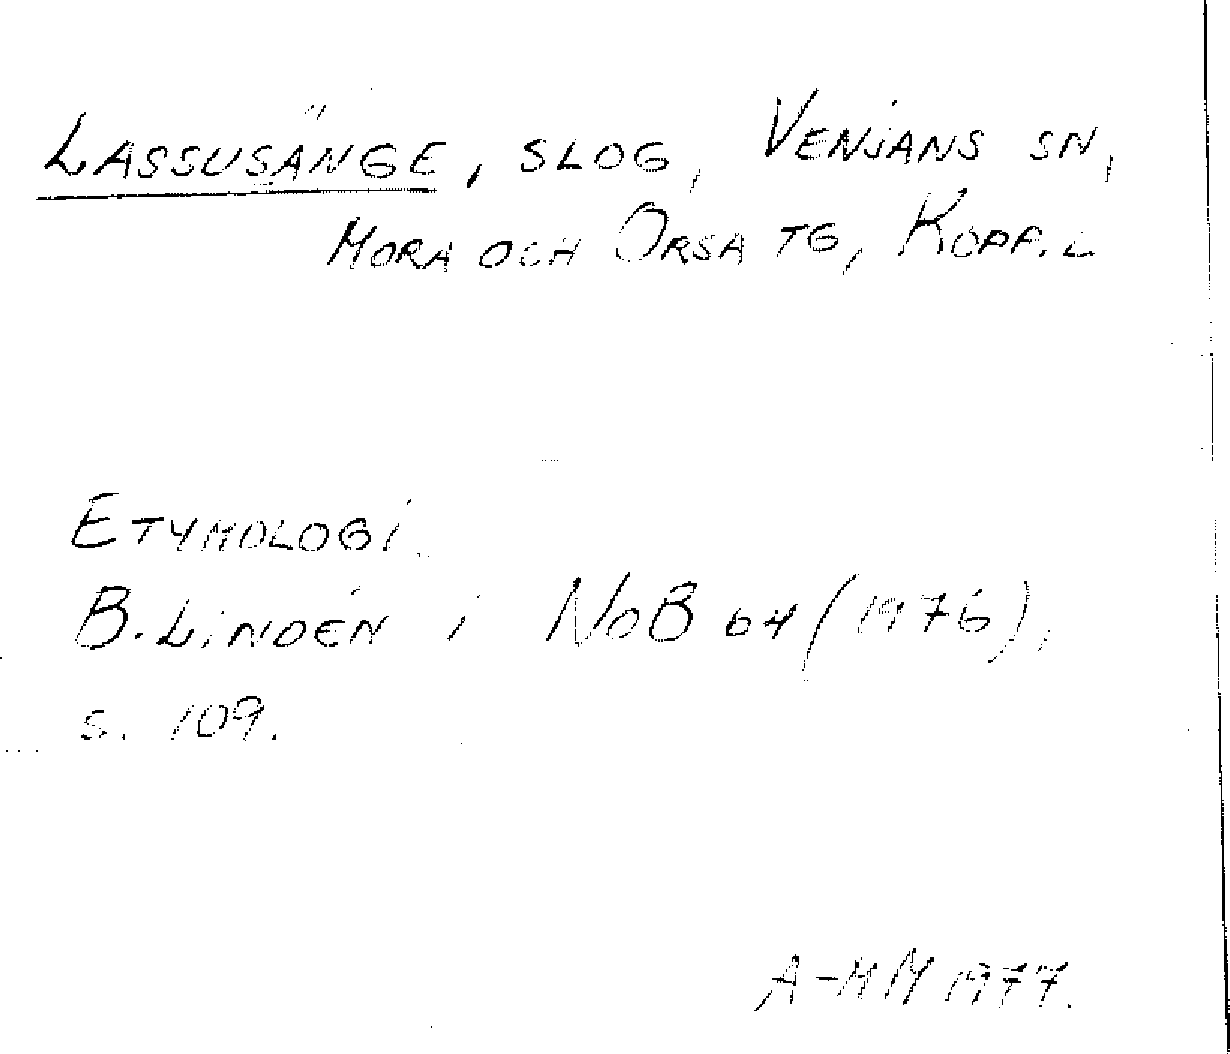 LASSUSÄNGE, SLOG, VENJANS SN,
MORA OCH ORSA TG, KOPP.L
ETYMOLOGI.
B. LINDÉN I NOB 64 (1976),
S. 109.
A-MM 1977.